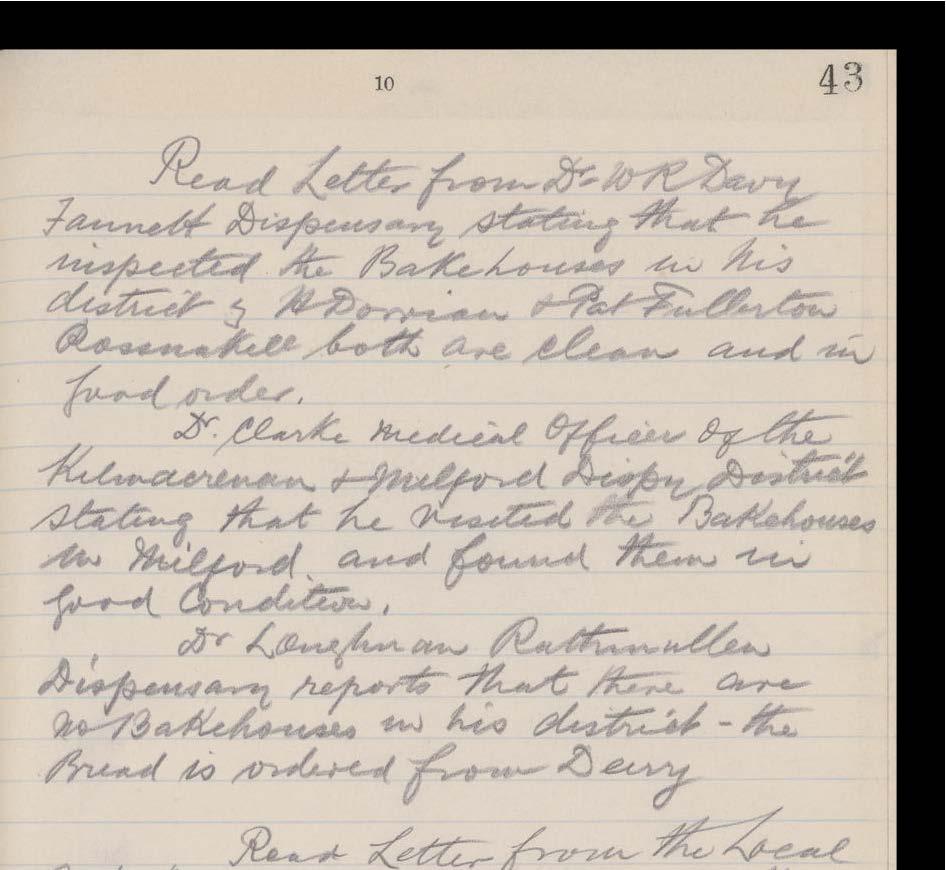 10
43
Read Letter from Dr W R Davy
Fannett Dispensary stating that he
inspected the Bakehouses in his
district of H Dorrian & Pat Fullerton
Rossnakill both are clean and in
good order.
Dr. Clarke Medical Officer of the
Kilmacrenan & Milford Dispy District
stating that he visited the Bakehouses
in Milford and found them in
good Condition.
Dr Loughman Rathmullen
Dispensary reports that there are
no Bakehouses in his district - the
Bread is ordered from Derry
Read Letter from the Local